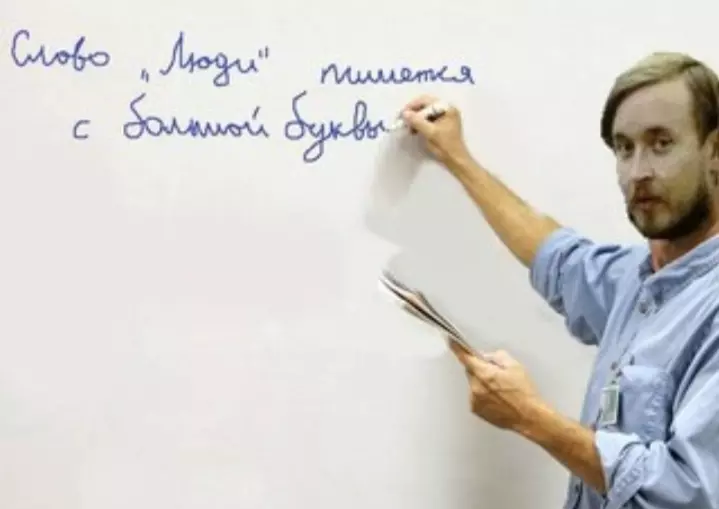 Слово „Люди" пишется
с большой буквы